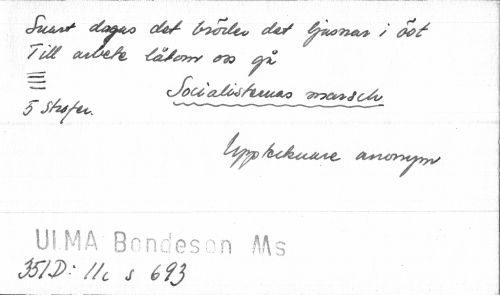 Snart dagas det bröder det ljusnar i öst
Till arbete låtom oss gå
Socialisternas marsch
5 strofer.
Upptecknare anonym
ULMA Bondeson Ms
351.D: 11c s 693